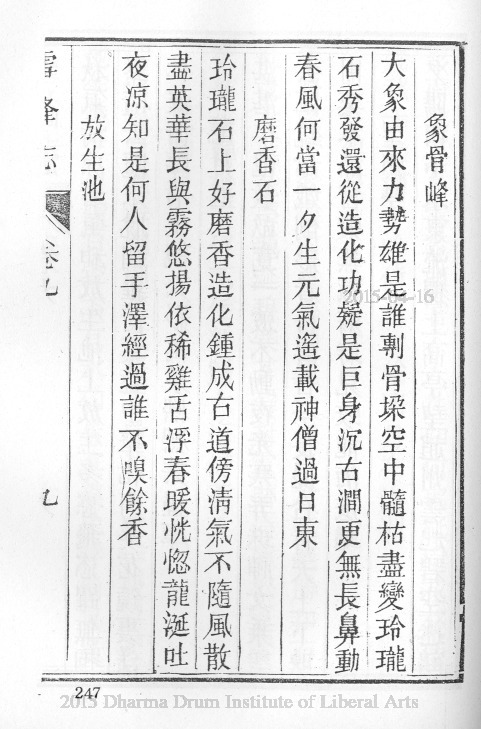 象骨峰
大象由來力勢雄是誰剸骨垜空中髓枯盡變玲瓏
石秀發還從造化功疑是巨身沉古澗更無長鼻動
春風何當一夕生元氣遙載神僧過日東
磨香石
玲瓏石上好磨香造化鍾成右道傍淸氣不隨風散
盡英華長與霧悠揚依稀雞舌浮春暖恍惚龍涎吐
夜凉知是何人留手澤經過誰不嗅餘香
放生池
雪峰志 卷九 九
2015-04-16
247
2015 Dharma Drum Institute of Liberal Arts